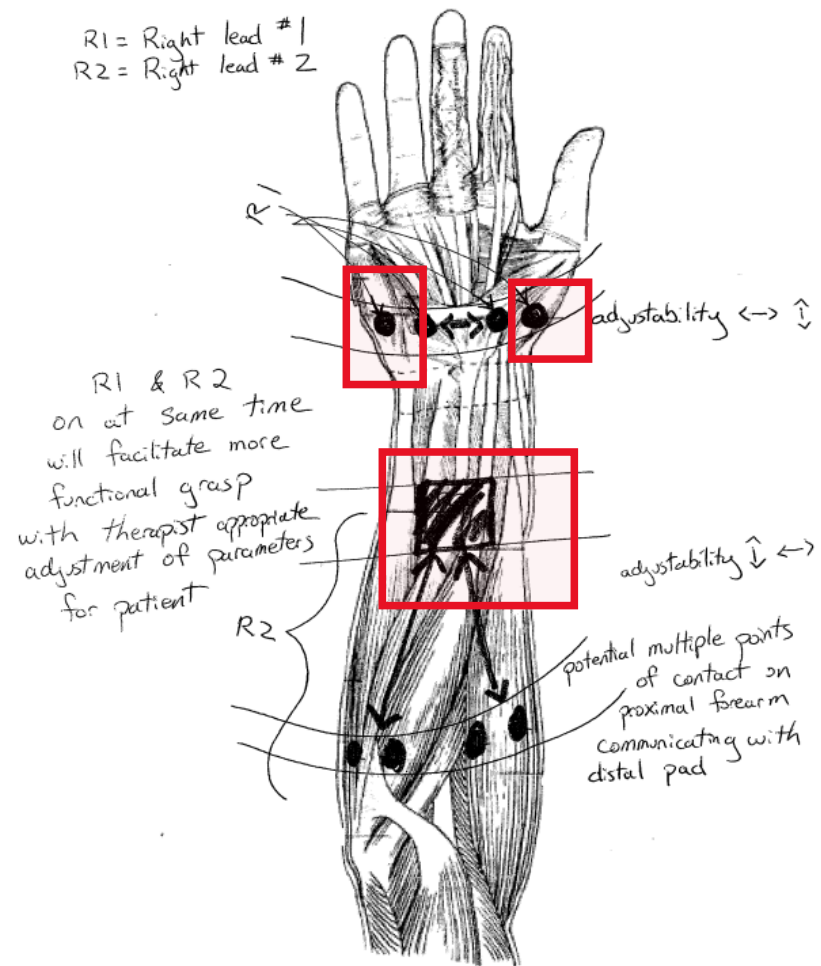 R1 = Right lead #1
R2 = Right lead # 2
R1
adjustability <-> ↕
R1 & R2
on at same time
will facilitate more
functional grasp
with therapist appropriate
adjustment of parameters
for patient
adjustability ↕ <->
R2
potential multiple points
of contact on
proximal forearm
communicating with
distal pad